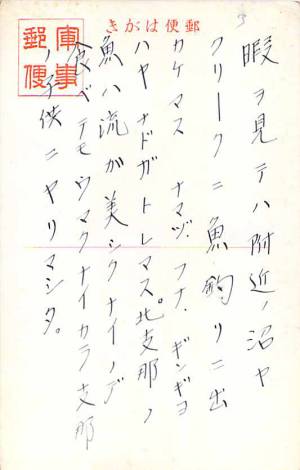 郵便はがき
軍事
郵便
暇ヲ見テハ附近ノ沼ヤ
クリークニ魚釣リニ出
カケマス ナマヅ、フナ、ギンギヨ
ハヤナドガトレマス。北支那ノ
魚ハ流ガ美シクナイノデ
食ベテモウマクナイカラ支那
ノ子供ニヤリマシタ。